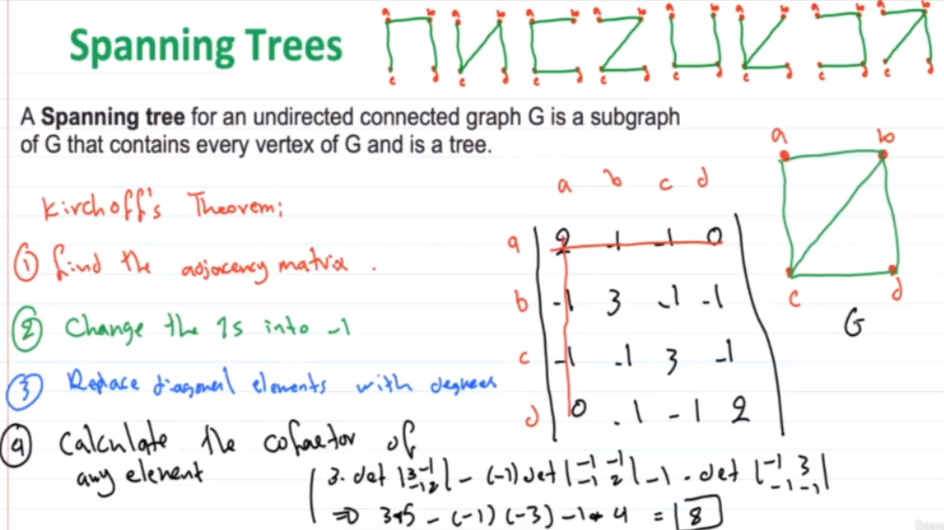 a b a b a b a b a b a b a b a b
c d c d c d c d c d c d c d c d
Spanning Trees
A Spanning tree for an undirected connected graph G is a subgraph
of G that contains every vertex of G and is a tree.
Kirchoff's Theorem:
① find the adjacency matrix .
② Change the 1s into -1
③ Replace diagonal elements with degrees
④ Calculate the cofactor of
any element
a b c d
a 2 -1 -1 0
b -1 3 -1 -1
c -1 -1 3 -1
d 0 -1 -1 2
a b
c d
G
3. det |3 -1 -1 2| - (-1) det |-1 -1 -1 2| -1 . det |-1 3 -1 -1|
⇒ 3*5 - (-1) (-3) -1* 4 = 8